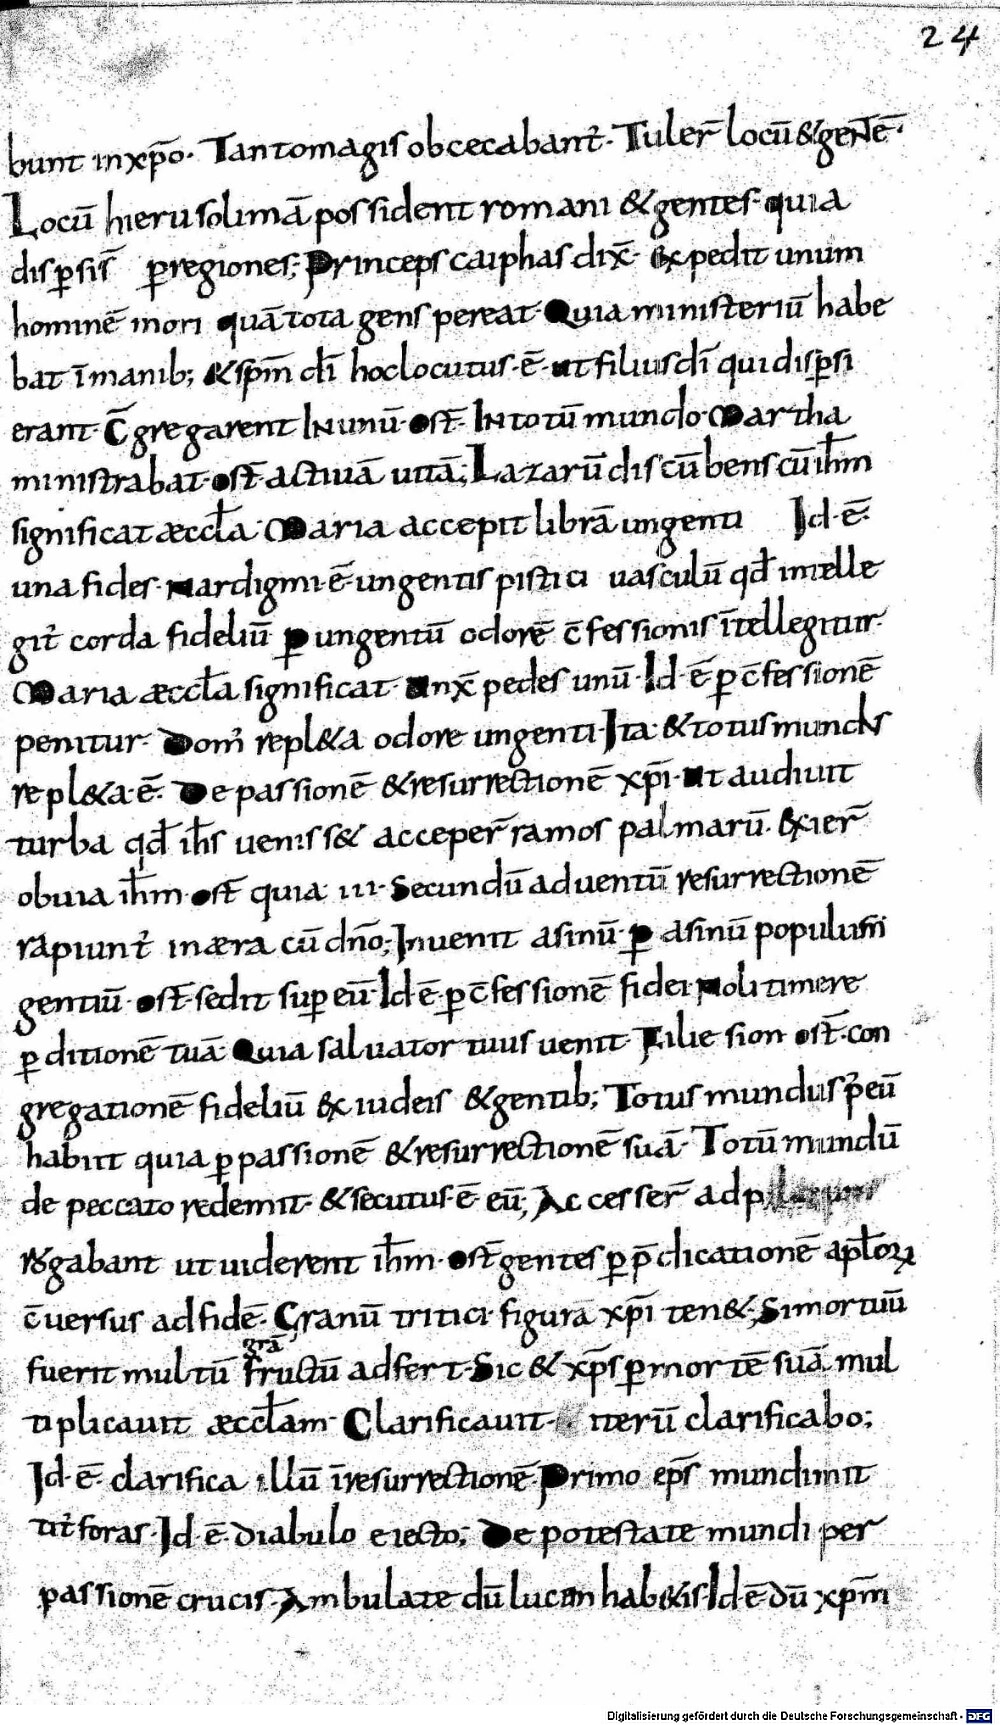 24
bunt inxp̄o. Tantomagis obcecabant̄. Tuler̄ locū &gentē.
Locū hierusolimā possident romani &gentes. quia
disꝑsis̄ ꝑregiones; Princeps caiphas dix̄. expedit unum
hominē mori quā tota gens pereat. Quia ministeriū habe
bat īmanib; &sp̄m dī hoclocutus. ē. ut filius dī qui disꝑsi
erant. c̄gregarent INunū. ost̄. INtotū mundo. Martha
ministrabat. ost̄ actiuā uitā; Lazarū discūbens cū ih̄m
significat æccl̄a. Maria accepit librā ungenti Id. ē.
una fides. Nardigmi ē. ungentis pistici uasculū qd̄ intelle
git̄ corda fideliū ꝑ ungentū odorē c̄fessionis ītellegitur.
Maria æccl̄a significat. unx̄ pedes unū. Id. ē ꝑ c̄fessionē
penitur. Dom̄ repl&a odore ungenti. Ita &totus mundus
repl&a. ē. De passionē &resurrectionē xp̄i. ut audiuit
turba qd̄ ih̄s uenis s& acceper̄ ramos palmarū. &xier̄
obuia ih̄m. ost̄ quia iii. secundū aduentū resurrectionē
rapiunt̄ inæra cū dn̄o; Inuenit asinū. ꝑ asinū populum̄
gentiū. ost̄. sedit suꝑ eū. Id ē. ꝑ c̄fessionē fidei Noli timere
ꝑditionē tuā Quia saluator tuus uenit. Filie sion ost̄. con
gregationē fideliū &x iudeis &gentib; Totus mundus p̄ eū
habuit quia ꝑpassionē &resurrectionē suā. Totū mundū
de peccato redemit. &secutus ē eū; Accesser̄ ad
rogabant ut uiderent ih̄m. ost̄ gentes ꝑ p̄dicationē apl̄oꝝ
c̄uersus adfidē. Granū tritici figurā xp̄i ten&; Simortuū
grā
fuerit multū fructū adfert. Sic & xp̄s ꝑmortē suā mul
tiplicauit æccl̄am. Clarificauit. iterū clarificabo;
Id. ē clarifica illū īresurrectionē. Primo ep̄s mundi mit
tit̄ foras. Id. ē. diabulo eiecto; De potestate mundi per
passionē crucis. Ambulate dū lucem hab&is. Id. ē dū xp̄m
Digitalisierung gefördert durch die Deutsche Forschungsgemeinschaft - DFG